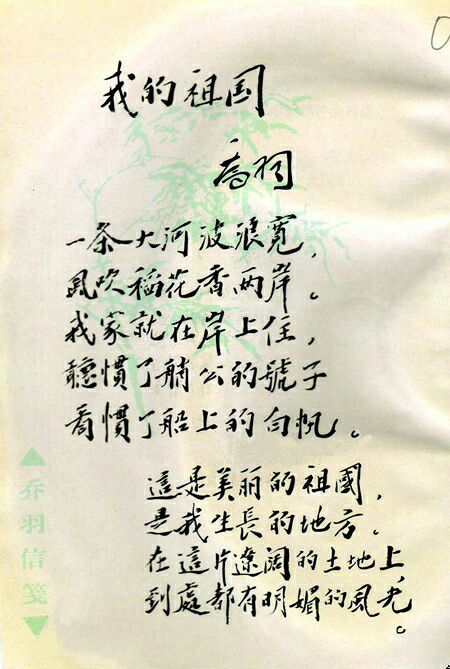 我的祖国
喬羽
一条大河波浪寬，
風吹稻花香两岸。
我家就在岸上住，
聽慣了艄公的號子
看慣了船上的白帆。
這是美丽的祖國，
是我生長的地方．
在這片遼闊的土地上，
到處都有明媚的風光。
▲乔羽信笺▼